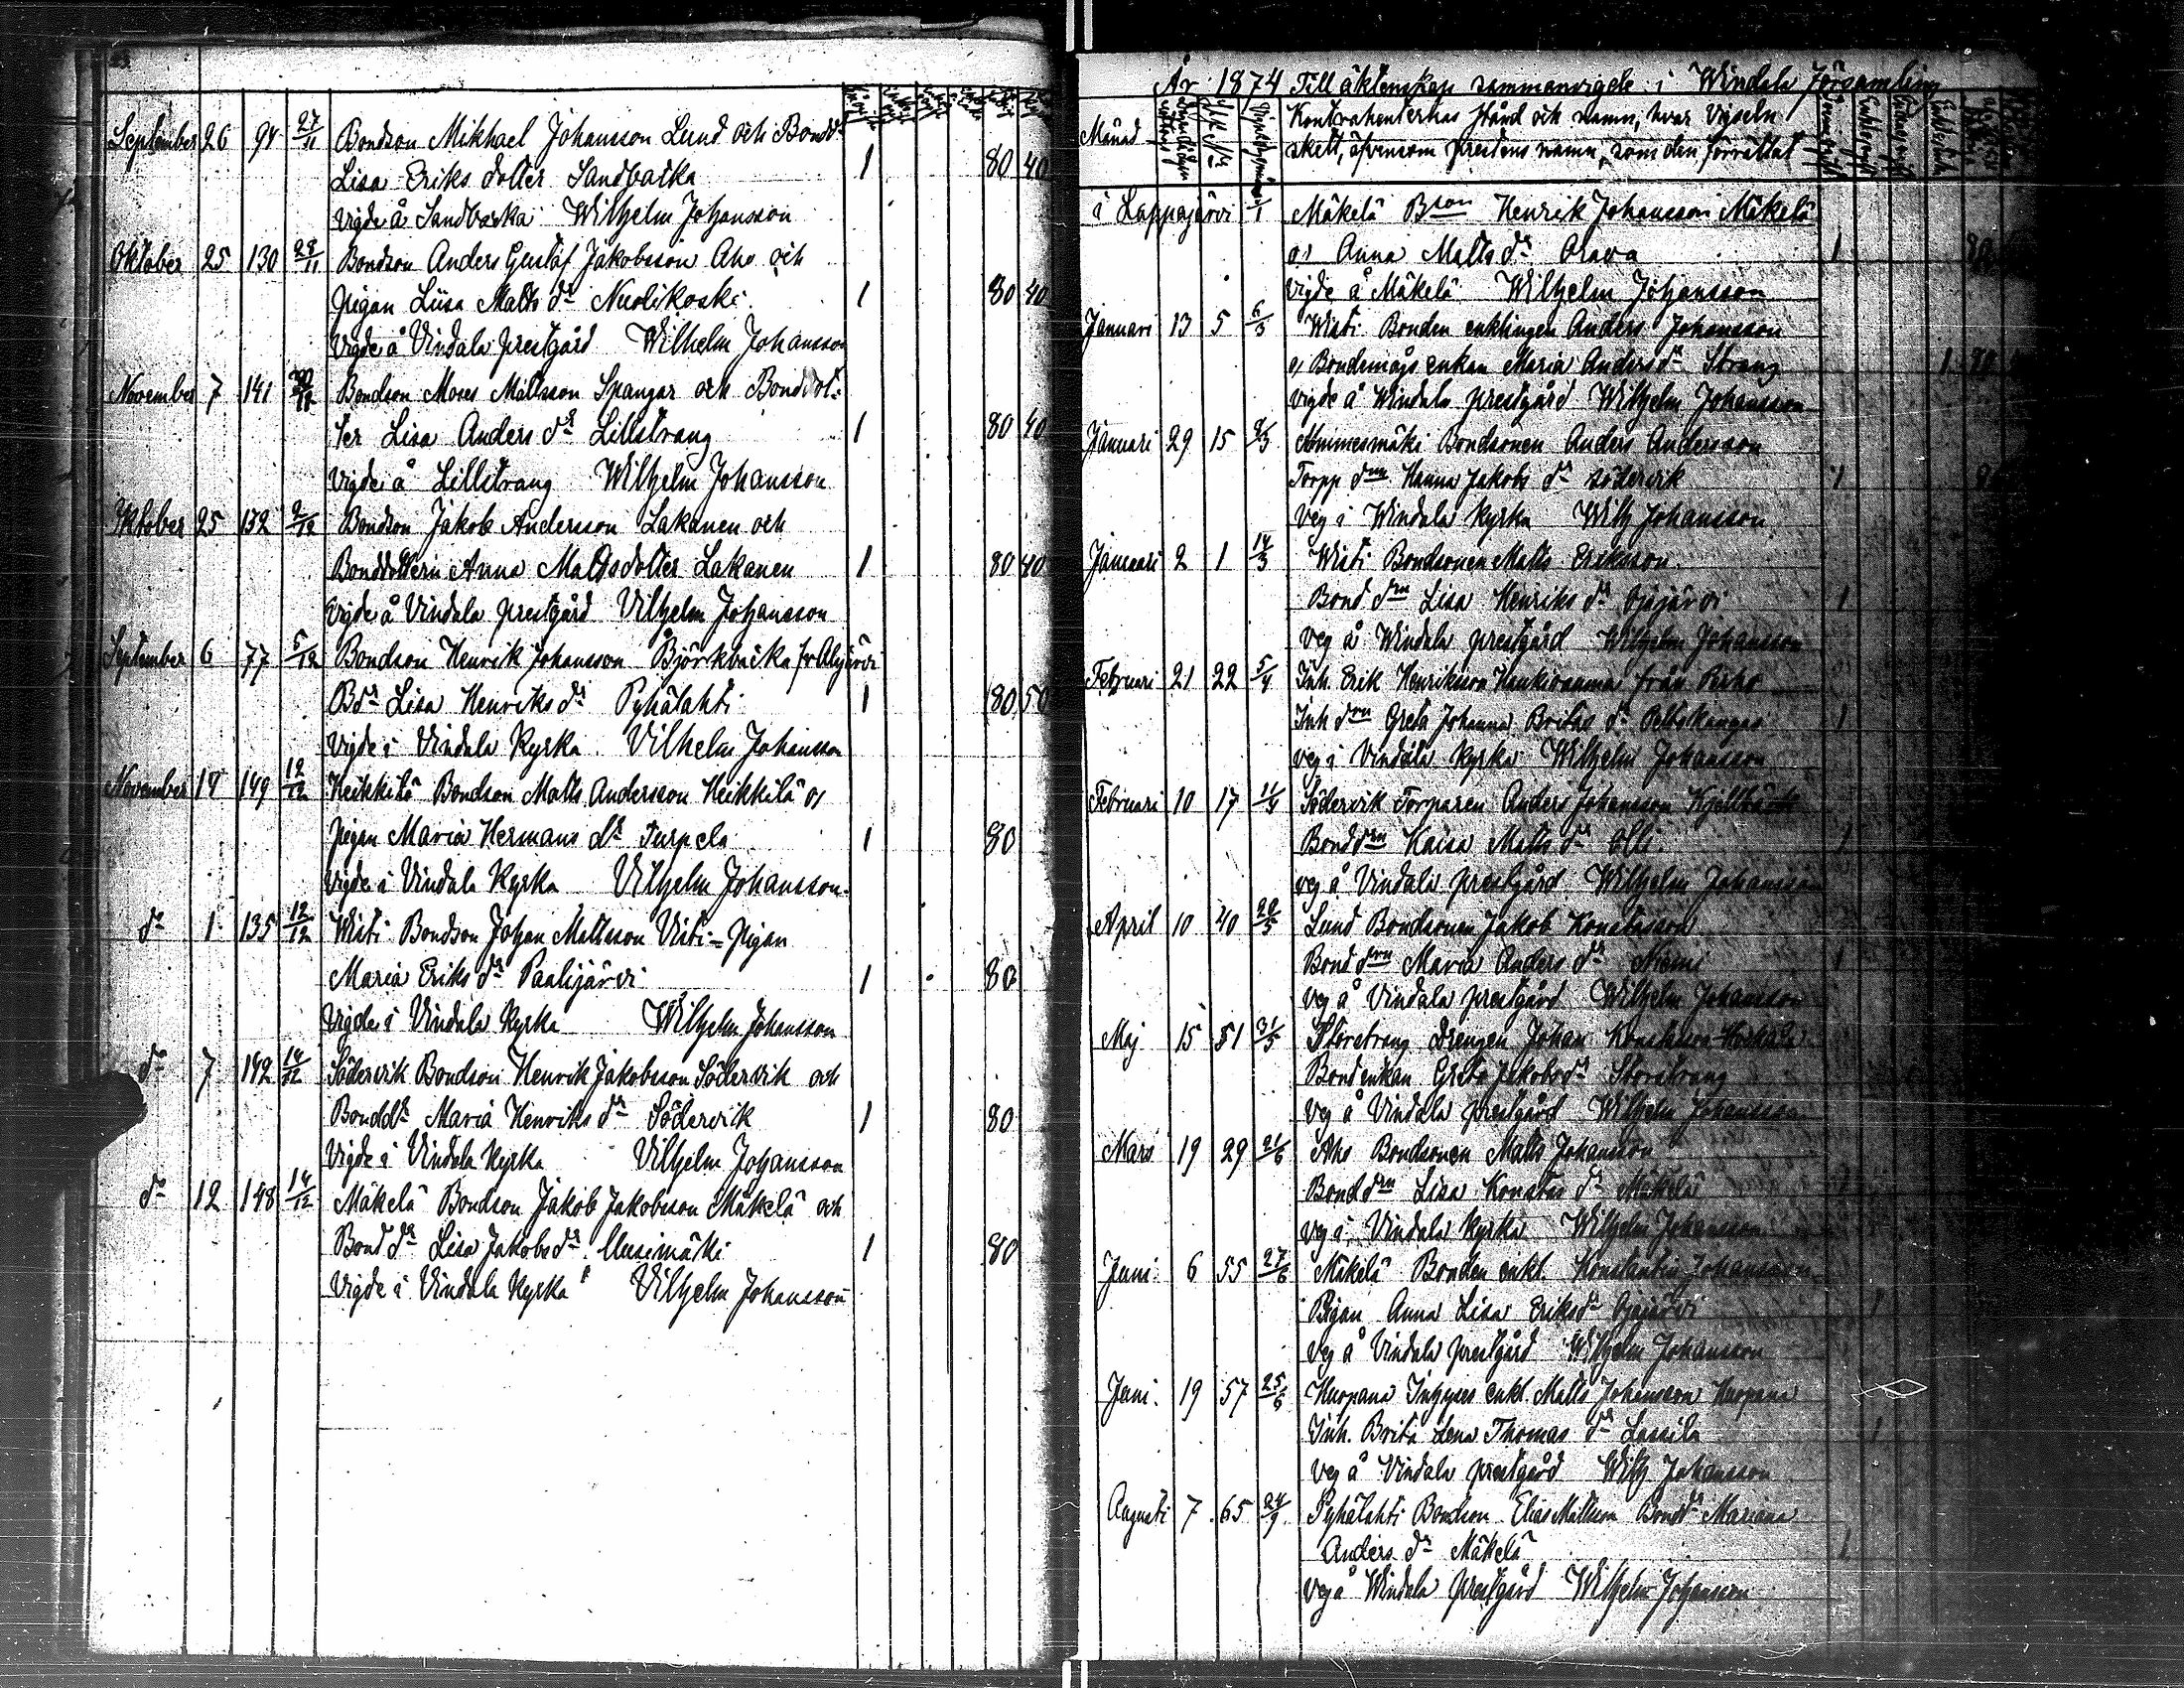 September 26 94 27/11 Bondson Mikhael Johansson Lund och Bondd:
Lisa Eriks dotter Sandbacka 1 80 40
vigde å Sandbacka Wilhelm Johansson
Oktober 25 130 28/11 Bondson Anders Gustaf Jakobsson Aho och
pigan Liisa Matts dr Nuolikoski 1 80 40
vigde å Vindala prestgård Wilhelm Johansson
November 7 141 Bondson Moses Mattsson Spangar och Bonddot:
ter Lisa Anders dr Lillstrang 1 80 40
vigde å Lillstrang Wilhelm Johansson
Oktober 25 132 9/12 Bondson Jakob Andersson Lakanen och
Bonddottern Anna Mattsdotter Lakanen 1 80 40
vigde å Vindala prestgård Vilhelm Johansson
September 6 77 5/12 Bondson Henrik Johansson Björkbacka fr Alajärvi
Bdr Lisa Henriks dr Pyhälahti 1 80 50
vigde i Vindala Kyrka Vilhelm Johansson
November 14 149 12/12 Heikkilä Bondson Matts Andersson Heikkilä o/
pigan Maria Hermans dr Turpela 1 80
vigde i Vindala Kyrka Vilhelm Johansson
do 1 135 12/12 Wisti Bondson Johan Mattsson Visti = pigan
Maria Eriks dr Paalijärvi 1 80
vigde i Vindala Kyrka Wilhelm Johansson
do 7 142 14/12 Södervik Bondson Henrik Jakobsson Södervik och
Bonddr Maria Henriks dr Södervik 1 80
vigde i Vindala Kyrka Vilhelm Johansson
do 12 148 14/12 Mäkelä Bondson Jakob Jakobsson Mäkelä och
Bond dr Lisa Jakobs dr Uusimäki 1 80
vigde i Vindala Kyrka Vilhelm Johansson
År 1874 Till äktenskap sammanvigde i Windala Församling
Månad Kontrahenternas stånd och namn, hvar vigseln
skett, äfvensom prestens namn, som den förrättat
i Lappajärvi Mäkelä Bson Henrik Johansson Mäkelä
o/ Anna Matts dr Orava 1 80
vigde å Mäkelä Wilhelm Johansson
Januari 13 5 6/3 Wisti Bonden enklingen Anders Johansson
o/ Bondemågs enkan Maria Anders dr Strang 1 80
vigde å Windala prestgård Wilhelm Johansson
Januari 29 15 Bondsonen Anders Andersson
Torpp drn Hanna Jakobs dr Södervik 1
veg i Windala Kyrka Wilh Johansson
Januari 2 1 14/3 Wisti Bondsonen Matts Eriksson
Bond drn Lisa Henriks dr Ojajärvi 1
veg å Windala prestgård Wilhelm Johansson
Februari 21 22 5/4 Inh. Erik Henriksson från Perho
Inh drn Greta Johanna Britas dr Peltokangas 1
veg i Vindala Kyrka Wilhelm Johansson
Februari 10 17 11/4 Södervik Torparen Anders Johansson
Bond drn Kaisa Matts dr Olli 1
veg å Vindala prestgård Wilhelm Johansson
April 10 40 Lund Bondsonen Jakob Konstasson
Bond drn Maria Anders dr Niemi 1
veg å Vindala prestgård Wilhelm Johansson
Maj 15 51 31/5 Storstrang drengen Johan
Bondenkan Greta Jakobs dr Storstrang
veg å Vindala prestgård Wilhelm Johansson
Mars 19 29 21/6 Aho Bondsonen Matts Johansson
Bond drn Lisa Konstas dr Mäkelä
veg i Vindala Kyrka Wilhelm Johansson
Juni 6 55 27/6 Mäkelä Bonden enkl. Konstantin Johansson
Pigan Anna Lisa Eriks dr Ojajärvi 1
veg å Vindala prestgård Wilhelm Johansson
Juni 19 57 25/6 Kuopana enkl. Matts Johansson Kuopana
Inh. Brita Lena Thomas dr Lassila 1
veg å Vindala prestgård Wilh Johansson
Augusti 7 65 24/9 Pyhälahti Bondson Elias Mattsson Bonddr Mariana
Anders dr Mäkelä 1
veg å Windala prestgård Wilhelm Johansson